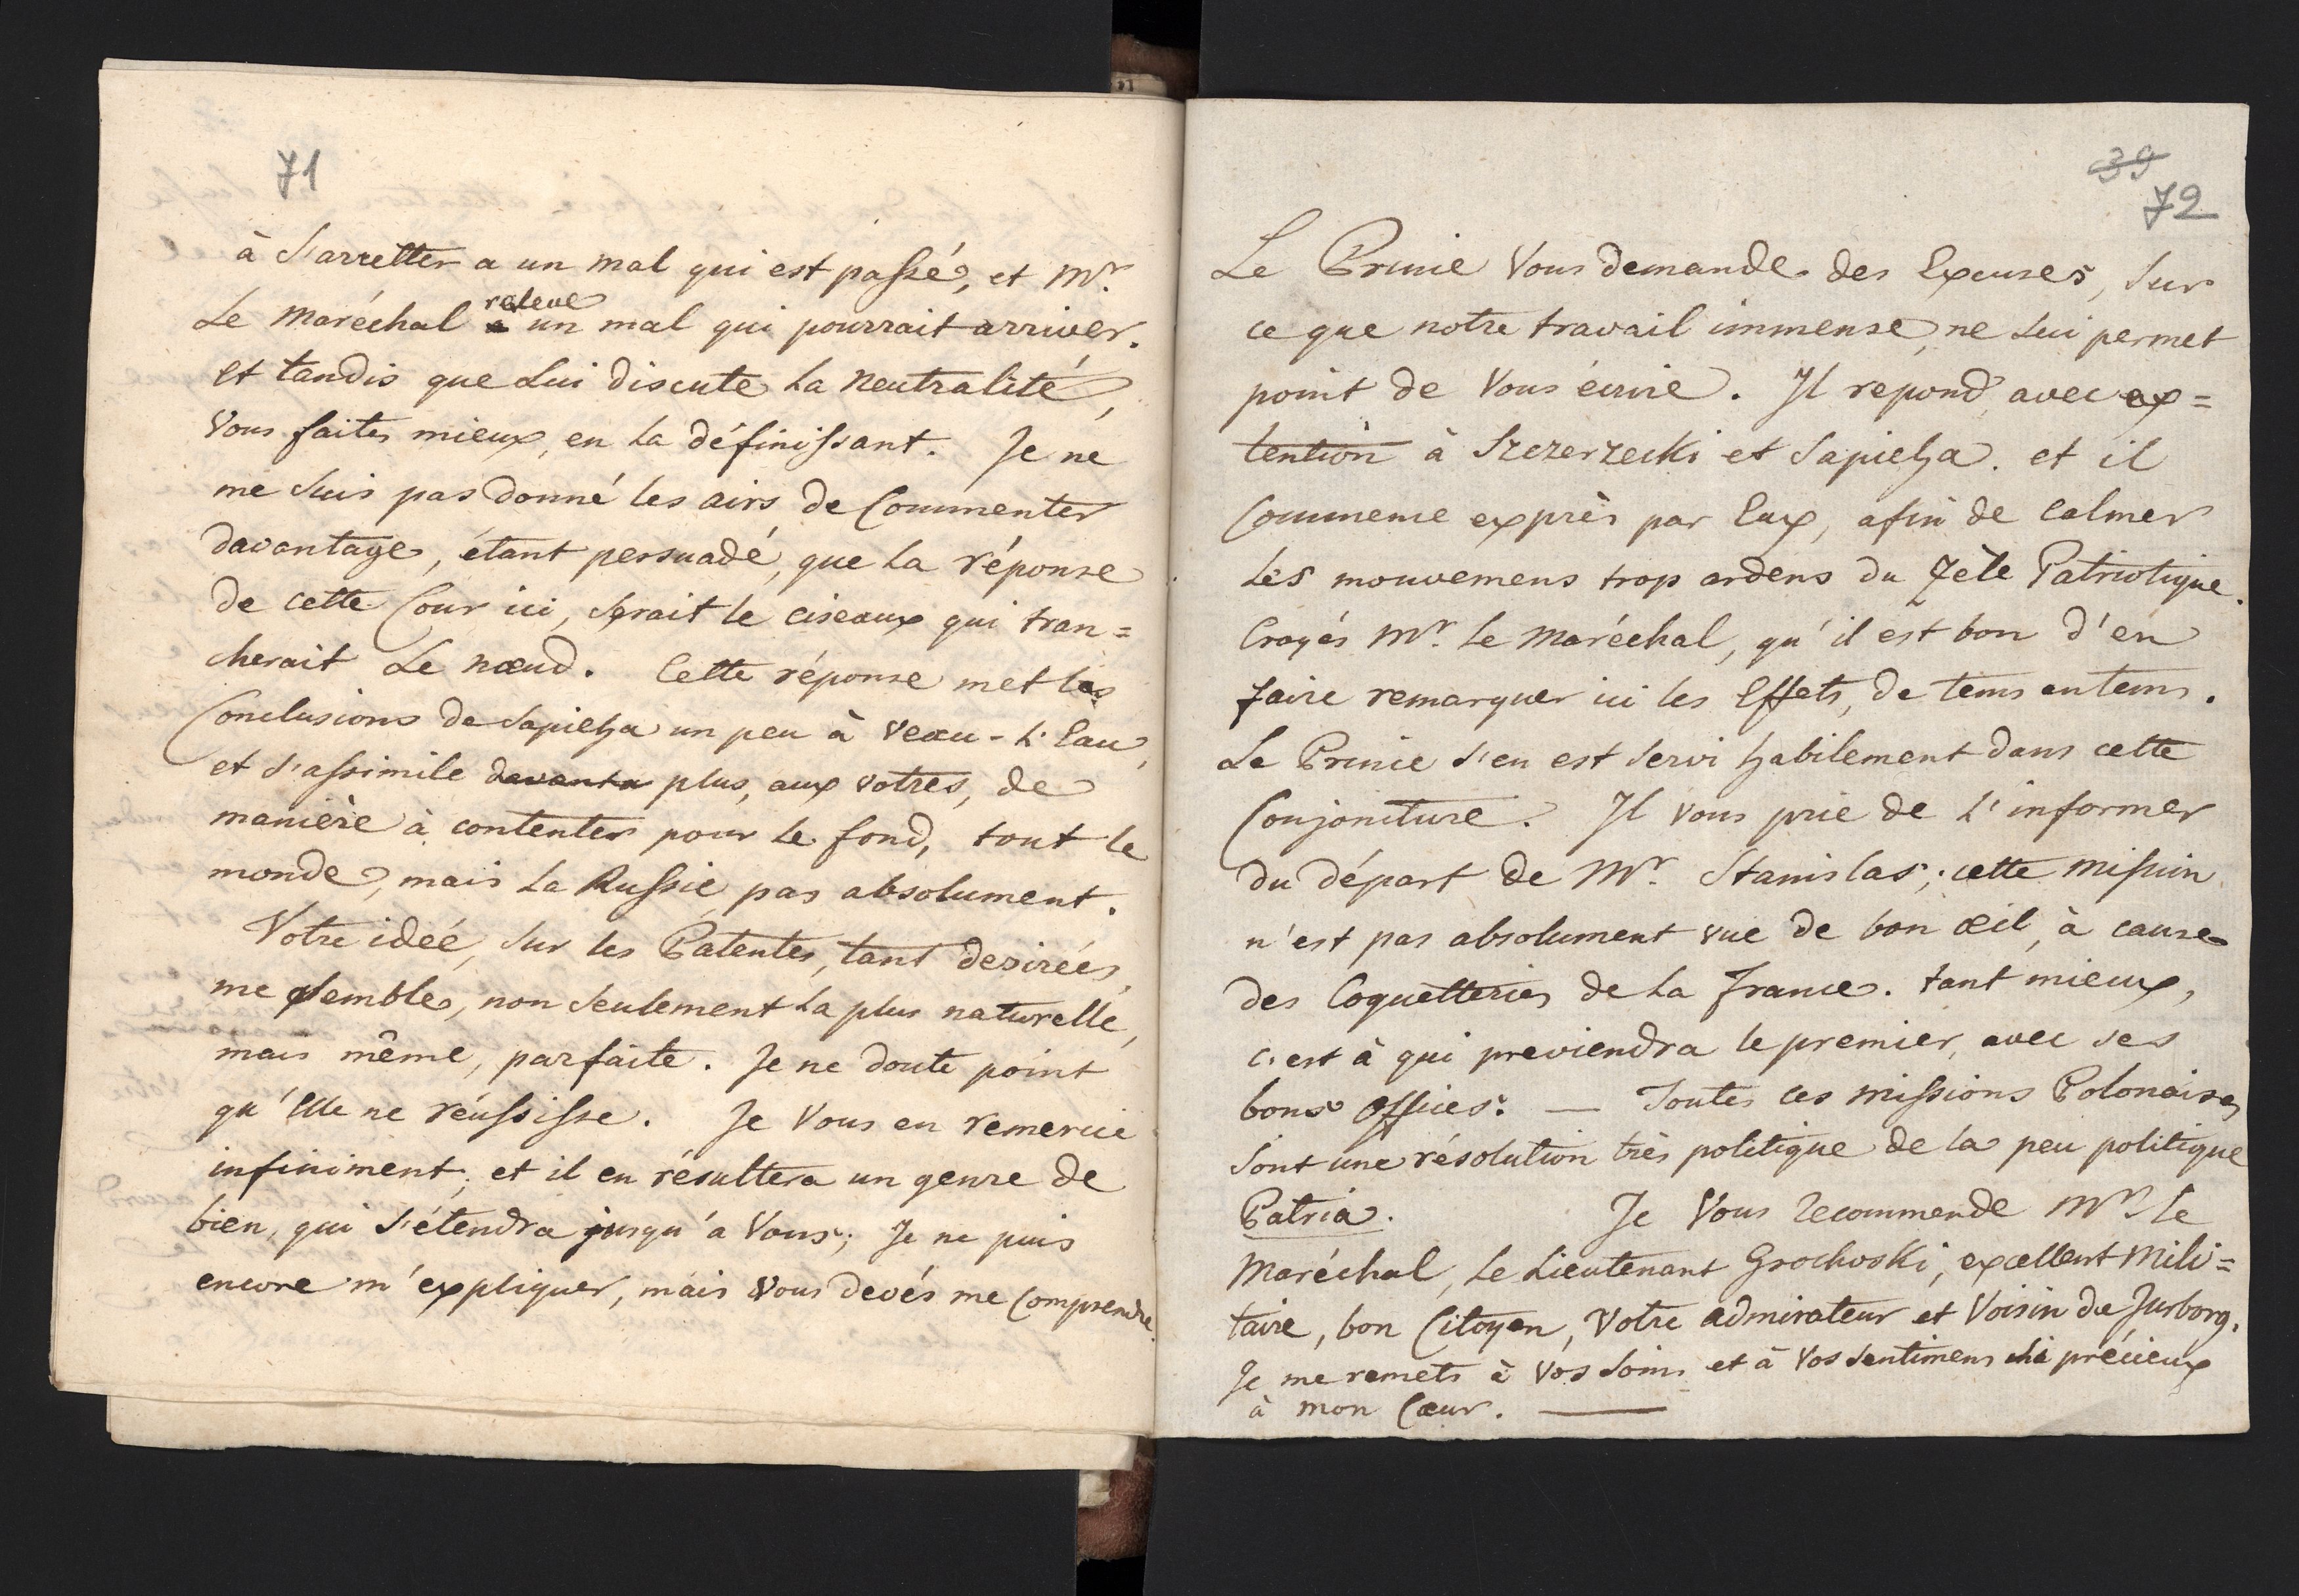 71
à S'arretter a un mal qui est passé, et Mr.
Le Maréchal releve un mal qui pourrait arriver.
et tandis que Lui discute la Neutralité,
Vous faites mieux, en la définissant. Je ne
me suis pas donné les airs de Commenter
davantage, étant persuadé, que la réponse
de cette Cour ici, serait le ciseaux qui tran=
cherait Le nœud. Cette réponse met les
Conclusions de Sapieha un peu à veau-l'Eau,
et s'assimile davanta plus, aux votres, de
manière à contenter pour le fond, tout le
monde, mais la Russie pas absolument.
Votre idée, sur les Patentes, tant desirées,
me semble, non seulement la plus naturelle,
mais même, parfaite. Je ne doute point
qu'Elle ne réussisse. Je Vous en remercie
infiniment; et il en résultera un genre de
bien, qui s'étendra jusqu'a Vous; Je ne puis
encore m'expliquer, mais Vous devés me Comprendre.
39
72
Le Prince Vous demande des Excuses, sur
ce que notre travail immense, ne Lui permet
point de Vous écrire. Il repond avec ex=
tention à Szczerzecki et Sapieha. et il
Commence exprès par Eux, afin de Calmer
les mouvemens trop ardens du Zèle Patriotique.
Croyés Mr. Le Maréchal, qu'il est bon d'en
faire remarquer ici les Effets, de tems en tems.
Le Prince s'en est servi habilement dans cette
Conjoncture. Il vous prie de L'informer
du départ de Mr. Stanislas; cette Mission
n'est pas absolument vue de bon œil, à cause
des Coquetteries de la France. tant mieux,
c'est à qui previendra le premier, avec ses
bons offices. — Toutes ces missions Polonaises
sont une résolution très politique de la peu politique
Patria. Je Vous recommende Mr. Le
Maréchal, Le Lieutenant Grochoski, excellent Mili=
taire, bon Citoyen, Votre admirateur et Voisin de Jurborg.
Je me remets à Vos soins et à Vos sentimens si précieux
à mon Cœur. —